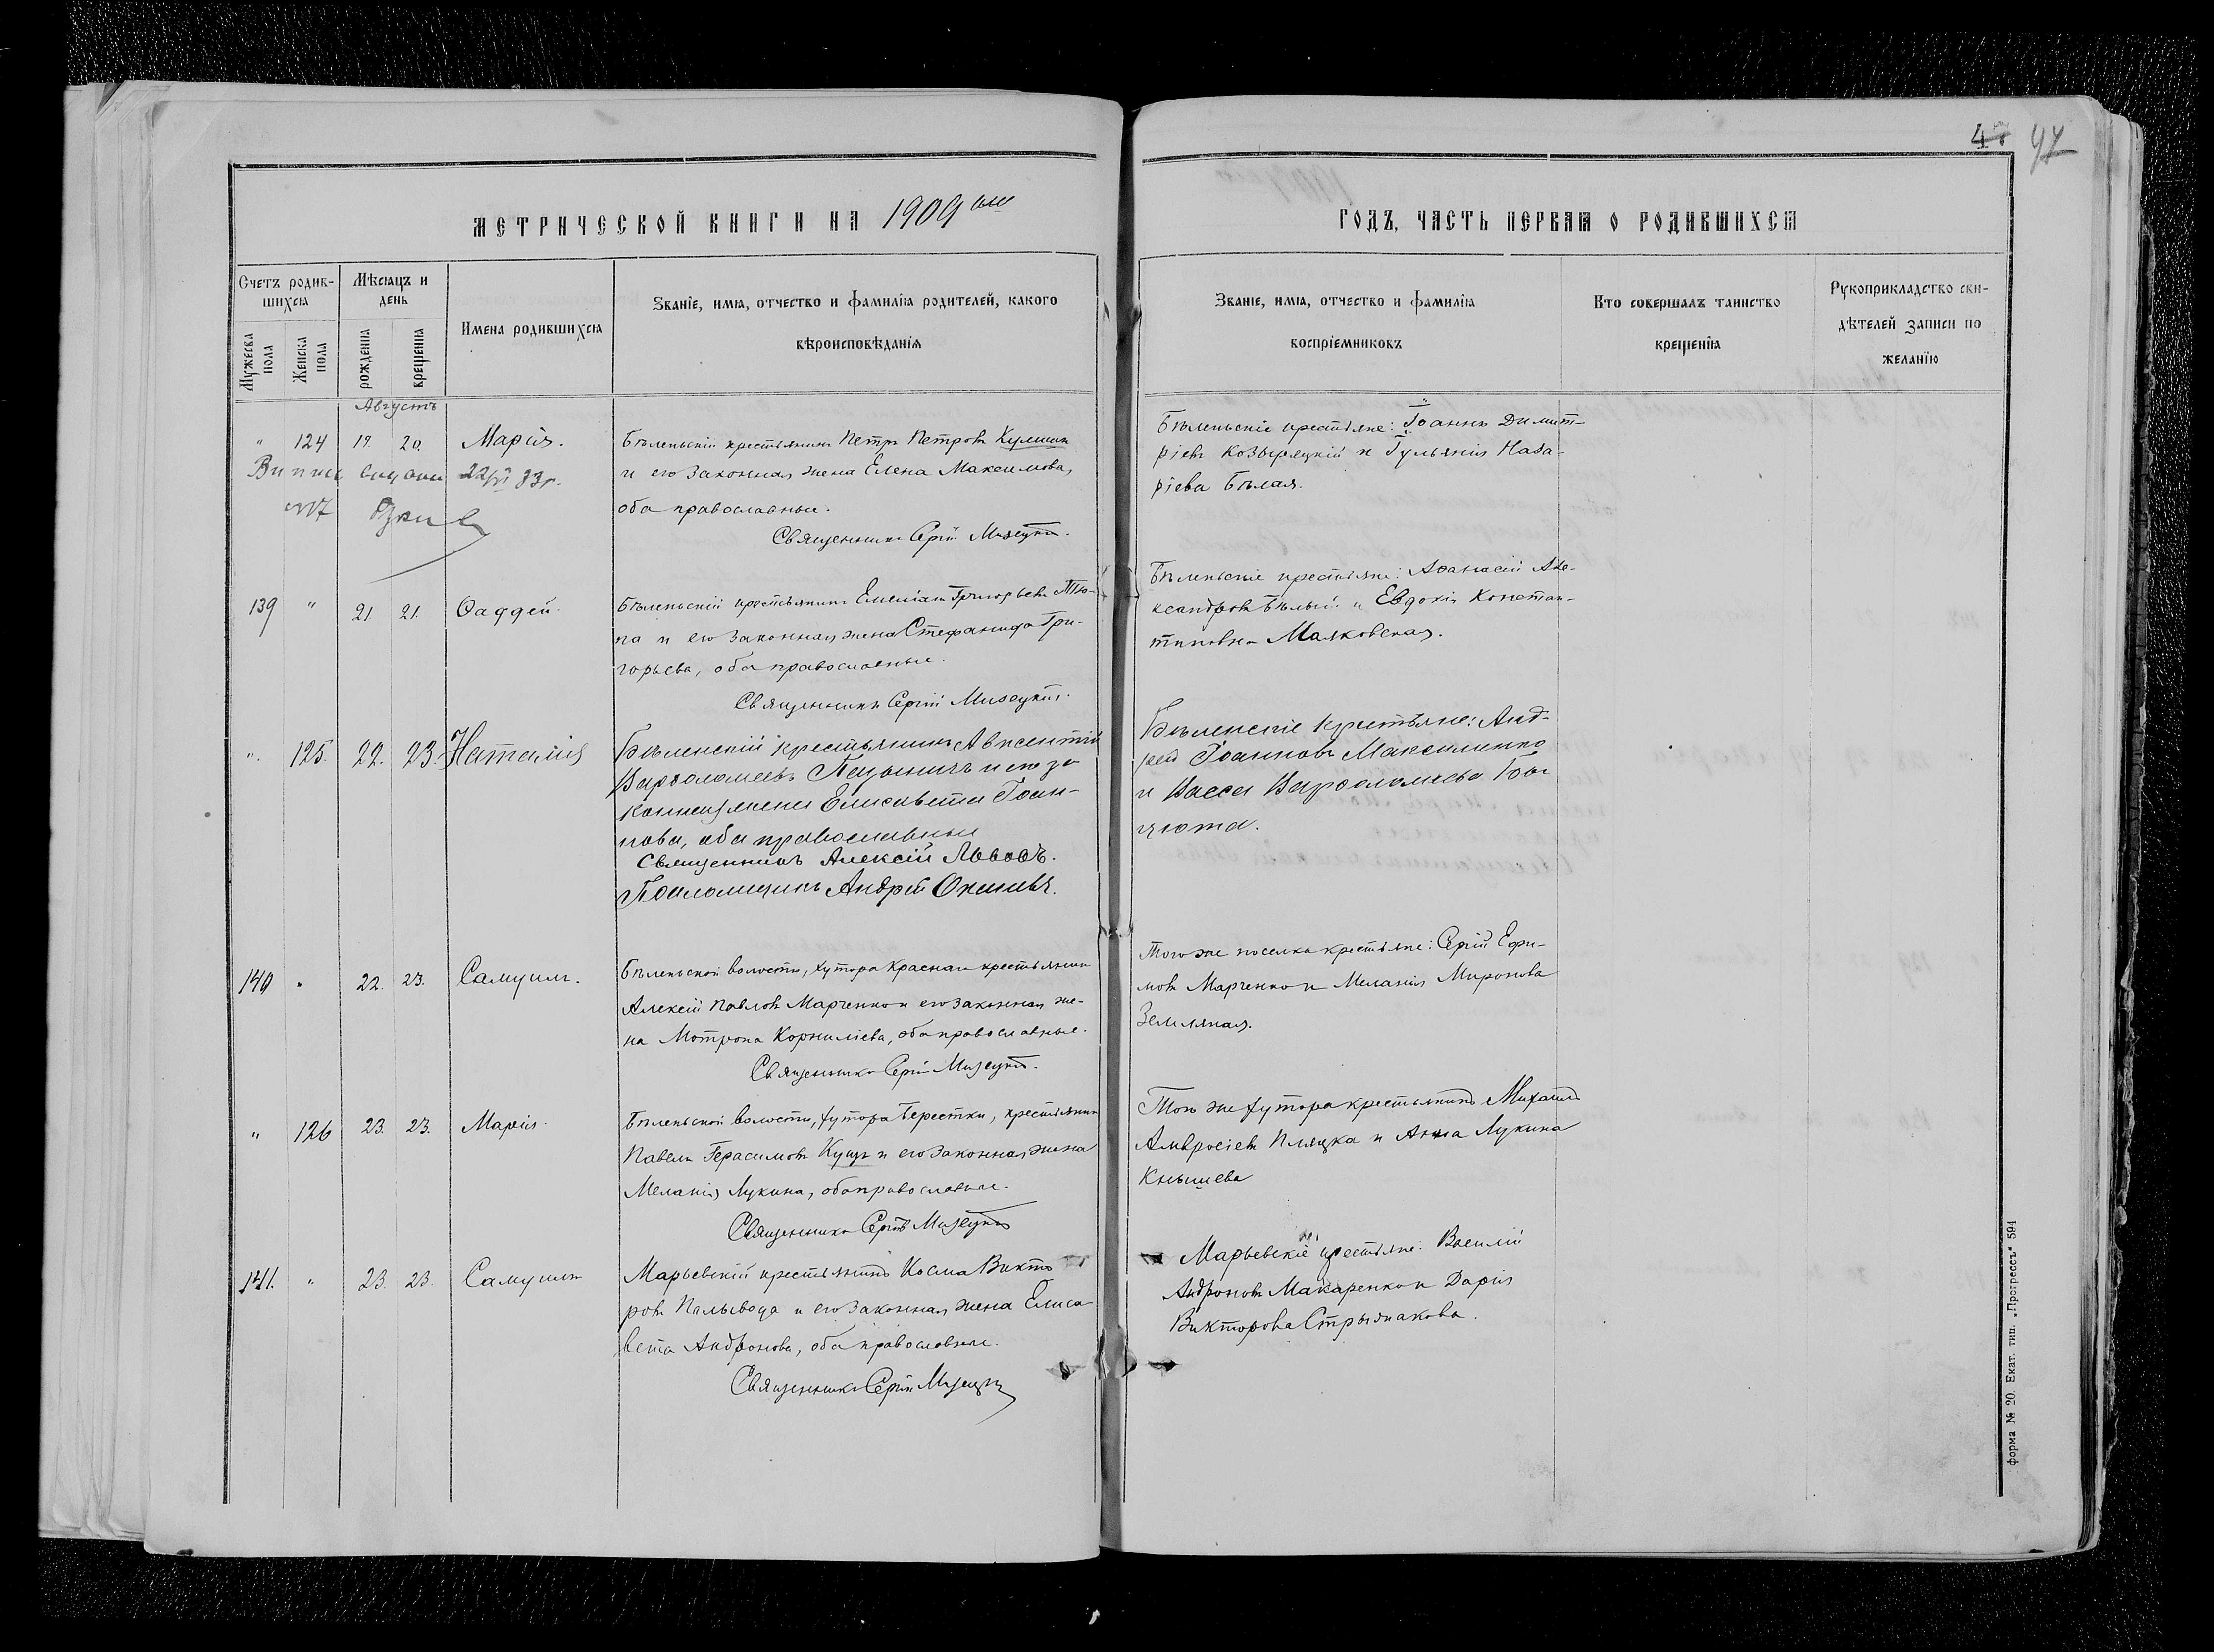 47 47
МЕТРИЧЕСКОЙ КНИГИ НА 1909 ый
ГОДЪ, ЧАСТЬ ПЕРВАЯ О РОДИВШИХСЯ
Счетъ родив-
шихся
Мѣсяцъ и
день
Мужеска
пола
Женска
пола
рожденія
крещенія
Имена родившихся
Званіе, имя, отчество и фамилія родителей, какого
вѣроисповѣданія
Званіе, имя, отчество и фамилія
воспріемниковъ
Кто совершалъ таинство
крещенія
Рукоприкладство сви-
дѣтелей записи по
желанію
Августъ
" 124 19 20. Марія.
22/VI 83 г.
Бѣленьскій крестьянинъ Петръ Петровъ
и его законная жена Елена Максимова,
оба православные.
Священникъ Сергій Мизецкій.
Бѣленьскіе крестьяне: Іоаннъ Димит-
ріевъ Козыряцкій и Іульянія Наза-
ріева Бѣлая.
139 " 21. 21. Фаддей.
Бѣленьскій крестьянинъ Емеліанъ Григорьевъ Тю-
па и его законная жена Стефанида Гри-
горьева, оба православные.
Священникъ Сергій Мизецкій.
Бѣленьскіе крестьяне: Афанасій Але-
ксандровъ Бѣлый и Евдокія Констан-
тиновна Маяковская.
" 125. 22. 23. Наталія
Бѣленскій крестьянинъ Авксентій
Варфоломеевъ и его за-
конная жена Елисавета Іоан-
нова, оба православные
Священникъ Алексій Львовъ.
Псаломщикъ Андрей
Бѣленскіе крестьяне: Анд-
рей Іоанновъ Максименко
и Васса Варфоломеева
140 " 22. 23. Самуилъ.
Бѣленьской волости, хутора Краснаго крестьянинъ
Алексій Павловъ Марченко и его законная же-
на Мотрона Корниліева, оба православные.
Священникъ Сергій Мизецкій.
Того же поселка крестьяне: Сергій Ефи-
мовъ Марченко и Меланія Миронова
Земляная.
" 126 23. 23. Марія.
Бѣленьской волости, хутора Берестки, крестьянинъ
Павелъ Герасимовъ Куцъ и его законная жена
Меланія Лукина, оба православные.
Священникъ Сергій Мизецкій
Того же хутора крестьянинъ Михаилъ
Амвросіевъ Пляцка и Анна Лукина
Кнышева
141. " 23 23. Самуилъ
Марьевскій крестьянинъ Косма Викто-
ровъ Палывода и его законная жена Елиса-
вета Андронова, оба православные.
Священникъ Сергій Мизецкій
Марьевскіе крестьяне: Василій
Андроновъ Макаренко и Дарія
Викторова Стрыжакова.
форма № 20. Екат. тип. „Прогрессъ" 594